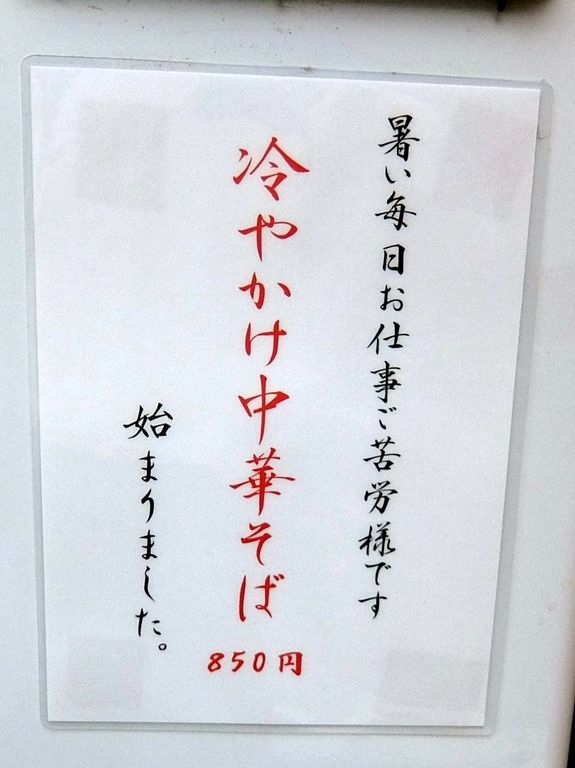 暑い毎日お仕事ご苦労様です
冷やかけ中華そば
850円
始まりました。